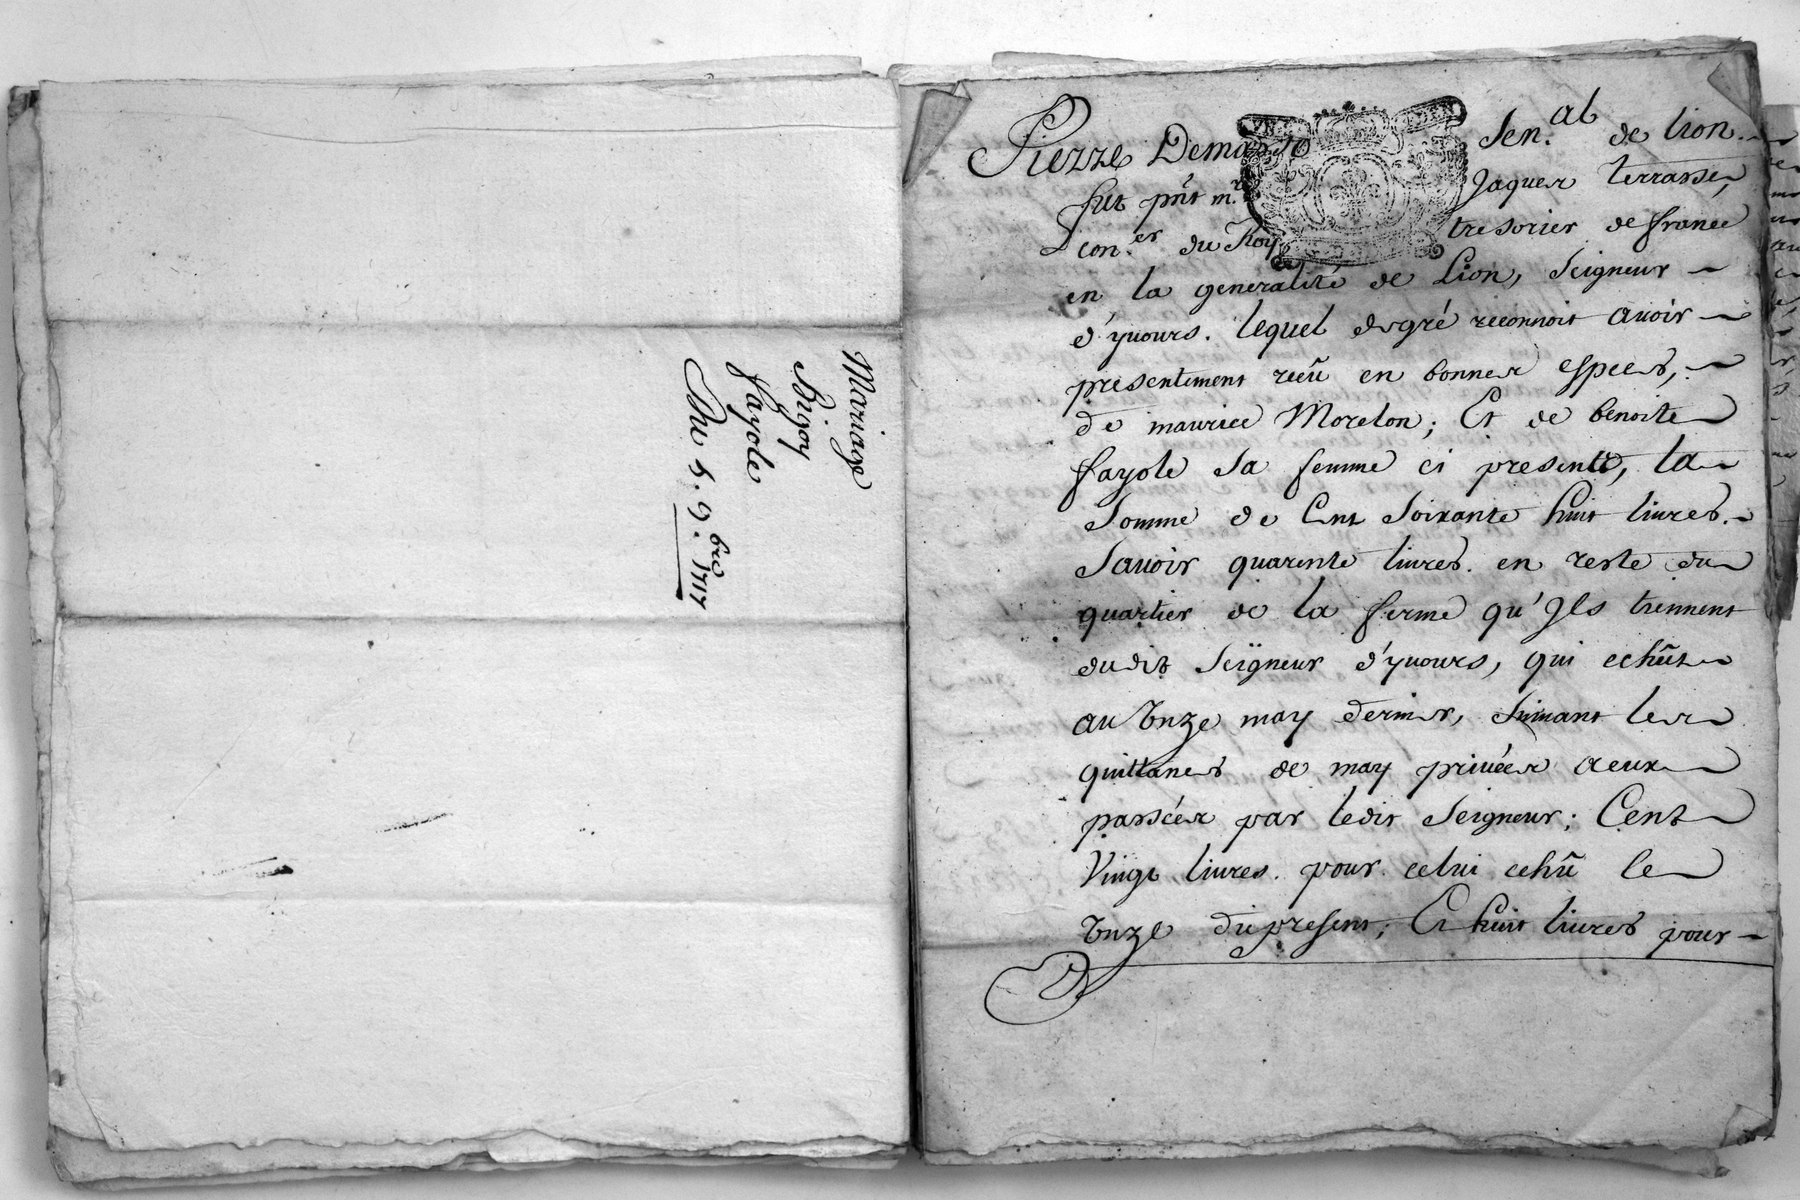 Mariage
Fayole
Du 5. 9.bre 1717
Pierre Sen.al de lion
fut pnt m.e Jaques terrasse,
con.er du Roy tresorier de france
en la generalité de Lion, Seigneur
d'yuours. lequel degré reconnoit auoir
presentement receu en bonnes especes,
de maurice Morelon; Et de benoite
fayole sa femme ci presente, la
Somme de Cent Soixante huit liures.
Sauoir quarente liures. en reste du
quartier de la ferme qu'Ils tiennent
dudit Seigneur d'yuours, qui echût
au Onze may dernier, Suiuant les
quittances de may priuées a eux
passées par ledit Seigneur; Cent
Vingt liures. pour celui echû le
Onze du present; Et huit liures pour